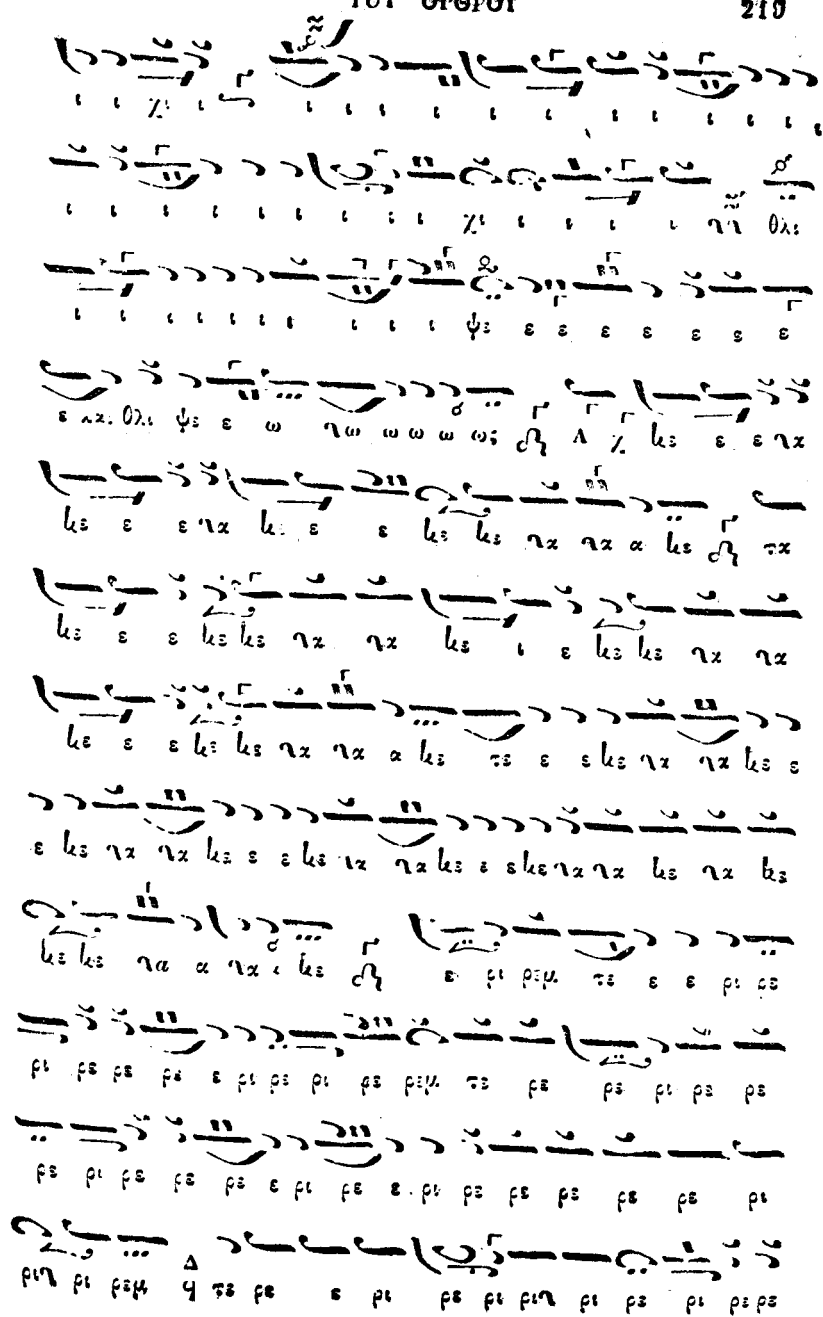 ΤΟΥ ΟΡΘΡΟΥ 219
ι ι χι ι ι ι ι ι ι ι ι ι ι ι ι ι
ι ι ι ι ι ι ι ι ι ι χι ι ι ι ι νη θλι
ι ι ι ι ι ι ι ι ι ι ι ψε ε ε ε ε ε ε ε
ε και θλι ψε ε ω νω ω ω ω ως Λ χ κε ε ε να
κε ε ε να κε ε ε κε κε να να α κε τα
κε ε ε κε κε να να κε ι ε κε κε να να
κε ε ε κε κε να να α κε τε ε ε κε να να κε ε
ε κε να να κε ε ε κε να να κε ε ε κε να να κε να κε
κε κε να α να ι κε ε ρι ρεμ τε ε ε ρι ρε
ρι ρε ρε ρε ε ρι ρε ρι ρε ρεμ τε ρε ρε ρι ρε ρε
ρε ρι ρε ρε ρε ε ρι ρε ε ρι ρε ρε ρε ρε ρε ρι
ριν ρι ρεμ Δ τε ρε ε ρι ρε ρι ριν ρι ρε ρι ρε ρε